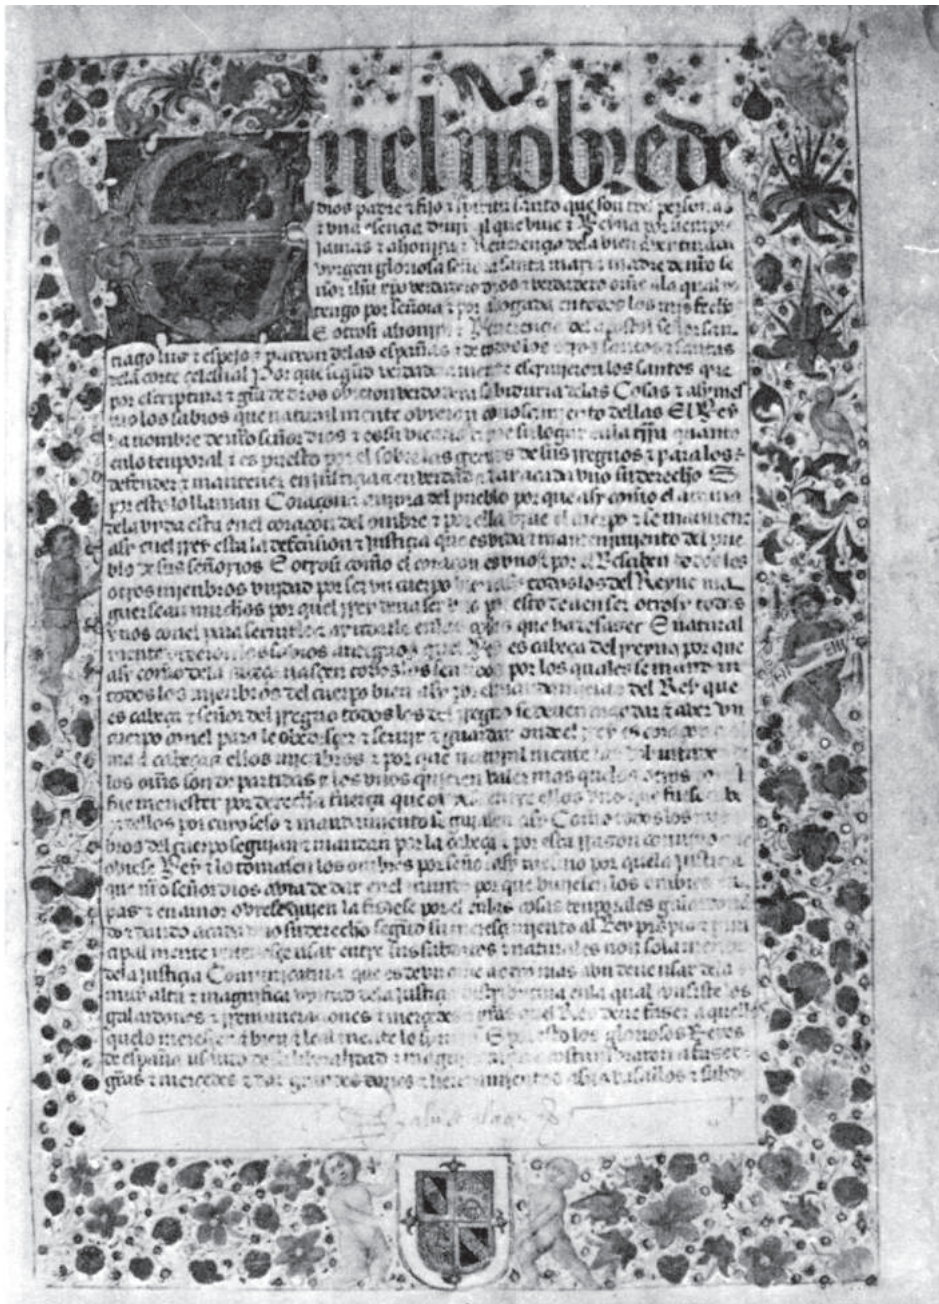 En el nobre de
dios padre & fijo & spiritu santo que son tres personas
& vna esencia diuinal que biue & Reyna por siempre
jamas & a honrra & Reuerençia dela bien auenturada
virgen gloriosa señora santa maria madre de nro se
ñor ihu xpo verdadero dios & verdadero ome ala qual yo
tengo por señora & por abogada en todos los mis fechos
E otrosi a honrra & Reuerençia del apostol señor san
tiago lus & espejo & patron delas españas & de todos los otros santos & santas
dela corte çelestial Por que segud verdadera mente escriuieron los santos que
por escriptura & gra de dios ovieron verdadera sabiduria delas Cosas & asy mes
mo los sabios que natural mente ovieron conosçimiento dellas El Rey
ha nombre de nro señor dios & es su vicario & tiene su logar en la trra quanto
enlo temporal & es puesto por el sobre las gentes de sus rregnos & para los
defender & mantener en justiçia & en verdad & dar a cada vno su derecho E
por esto lo llaman Coraçon & anima del pueblo por que asy como el anima
dela vida esta enel coraçon del ombre & por ella biue el cuerpo & se mantiene
asy enel rrey esta la defension & justiçia que es vida & mantenimiento del pue
blo de sus señorios E otrosi como el coraçon es vno & por el Resçiben todos los
otros mienbros vnidad por ser vn cuerpo bien asy todos los del Reyno ma
guer sean muchos por quel rrey deua ser vno por esto deuen ser otrosy todos
vnos conel para seruirlo & ayudarle enlas cosas que ha de faser E natural
mente dixeron los sabios antiguos quel Rey es cabeça del rreyno por que
asy como dela cabeça nasçen todos los sentidos por los quales se mandan
todos los mienbros del cuerpo bien asy por el mandamiento del Rey que
es cabeça & señor del rregno todos los del rregno se deuen mandar & aber vn
cuerpo conel para le obedesçer & seruir & guardar onde el rrey es coraçon &
& cabeça & ellos mienbros & por que natural mente las voluntades
los oms son de partidas & los vnos quieren valer mas quelos otros
fue menester por derecha fuerça que oviese entre ellos vno que fuese cabe
dellos por cuyo seso & mandamiento se guiasen asy Como todos los mien
bros del cuerpo se guian & mandan por la cabeça & por esta rrason convino que
obiese Rey & lo tomasen los ombres por señor asy mesmo por quela justiçia
que nro señor dios avia de dar enel mundo por que biuiesen los ombres en
pas & en amor oviese quien la fisiese por el enlas cosas temporales galardonan
do & dando a cada vno su derecho segud su meresçimiento al Rey propia & prin
çipal mente pertenesçe vsar entre sus subditos & naturales non sola mente
dela justiçia Comunicatiua que es de vn ome a otro mas avn deue vsar dela
muy alta & magnifica virtud dela justiçia distributiua enla qual consiste los
galardones & rremuneraçiones & merçedes & gras quel Rey deue faser a aquellos
quelo meresçen & bien & leal mente lo siruen E por esto los gloriosos Reyes
de españa vsando de su liberalidad & magnifiçençia acostumbraron a faser
gras & merçedes & dar grandes dones & heredamientos a sus vasallos & subdi